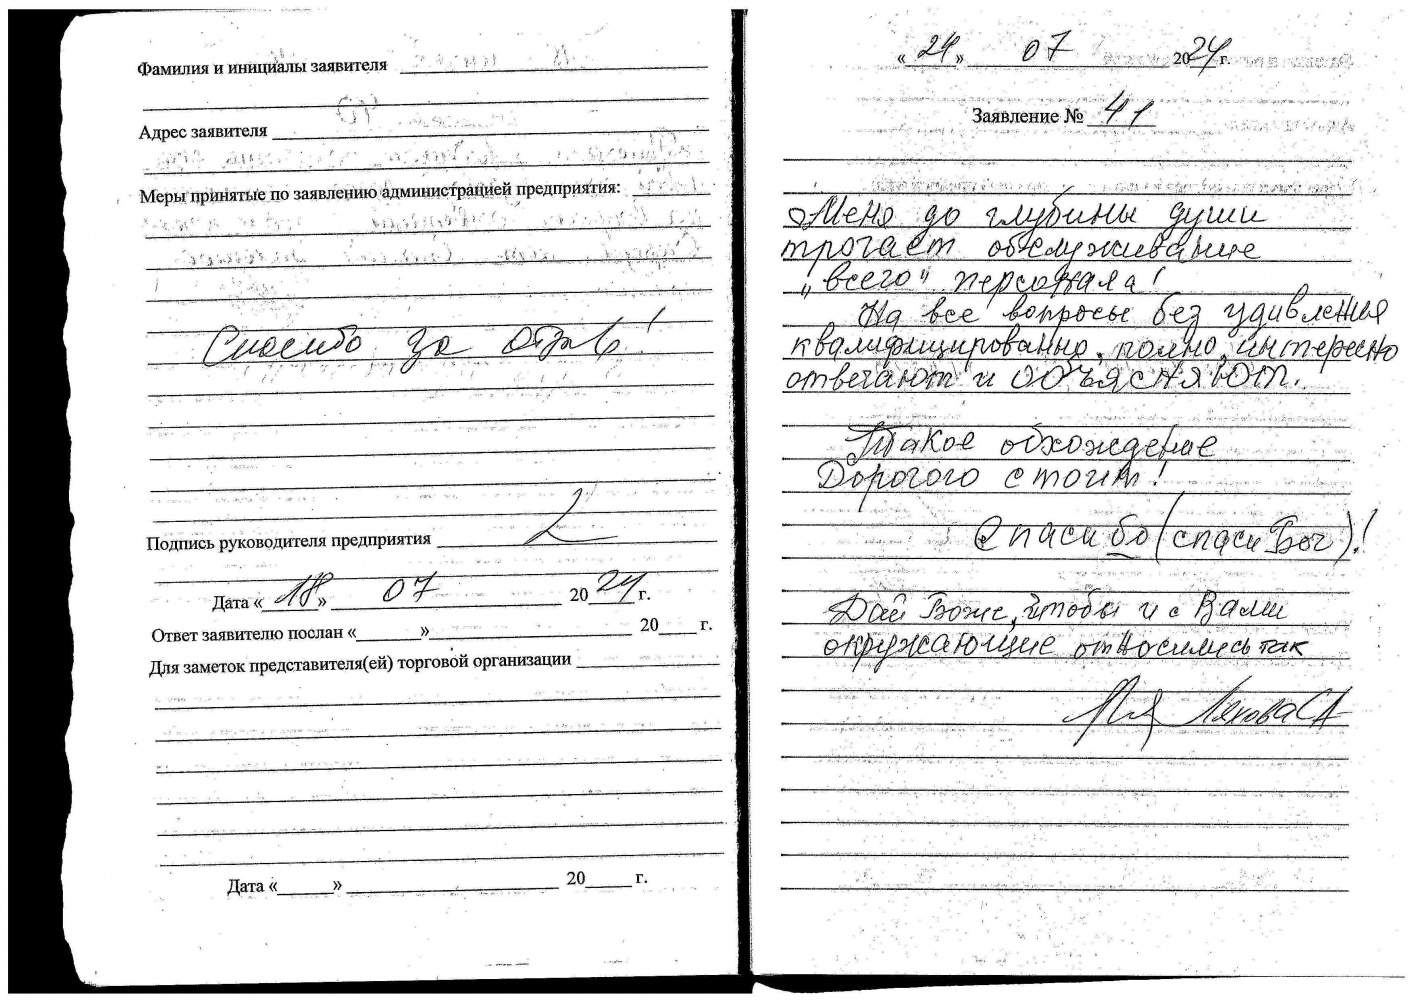 Фамилия и инициалы заявителя
Адрес заявителя
Меры принятые по заявлению администрацией предприятия:
Спасибо за отзыв!
Подпись руководителя предприятия
Дата «18» 07 2024 г.
Ответ заявителю послан «» 20 г.
Для заметок представителя(ей) торговой организации
Дата «» 20 г.
«24» 07 2024 г.
Заявление № 41
Меня до глубины души
трогает обслуживание
"всего" персонала!
На все вопросы без удивления
квалифицированно, полно, интересно
отвечают и ОБЪЯСНЯЮТ.
Такое обхождение
Дорогого стоит!
Спасибо (спаси Бог)!
Дай Боже, чтобы и с Вами
окружающие относились так
Ляхова СА